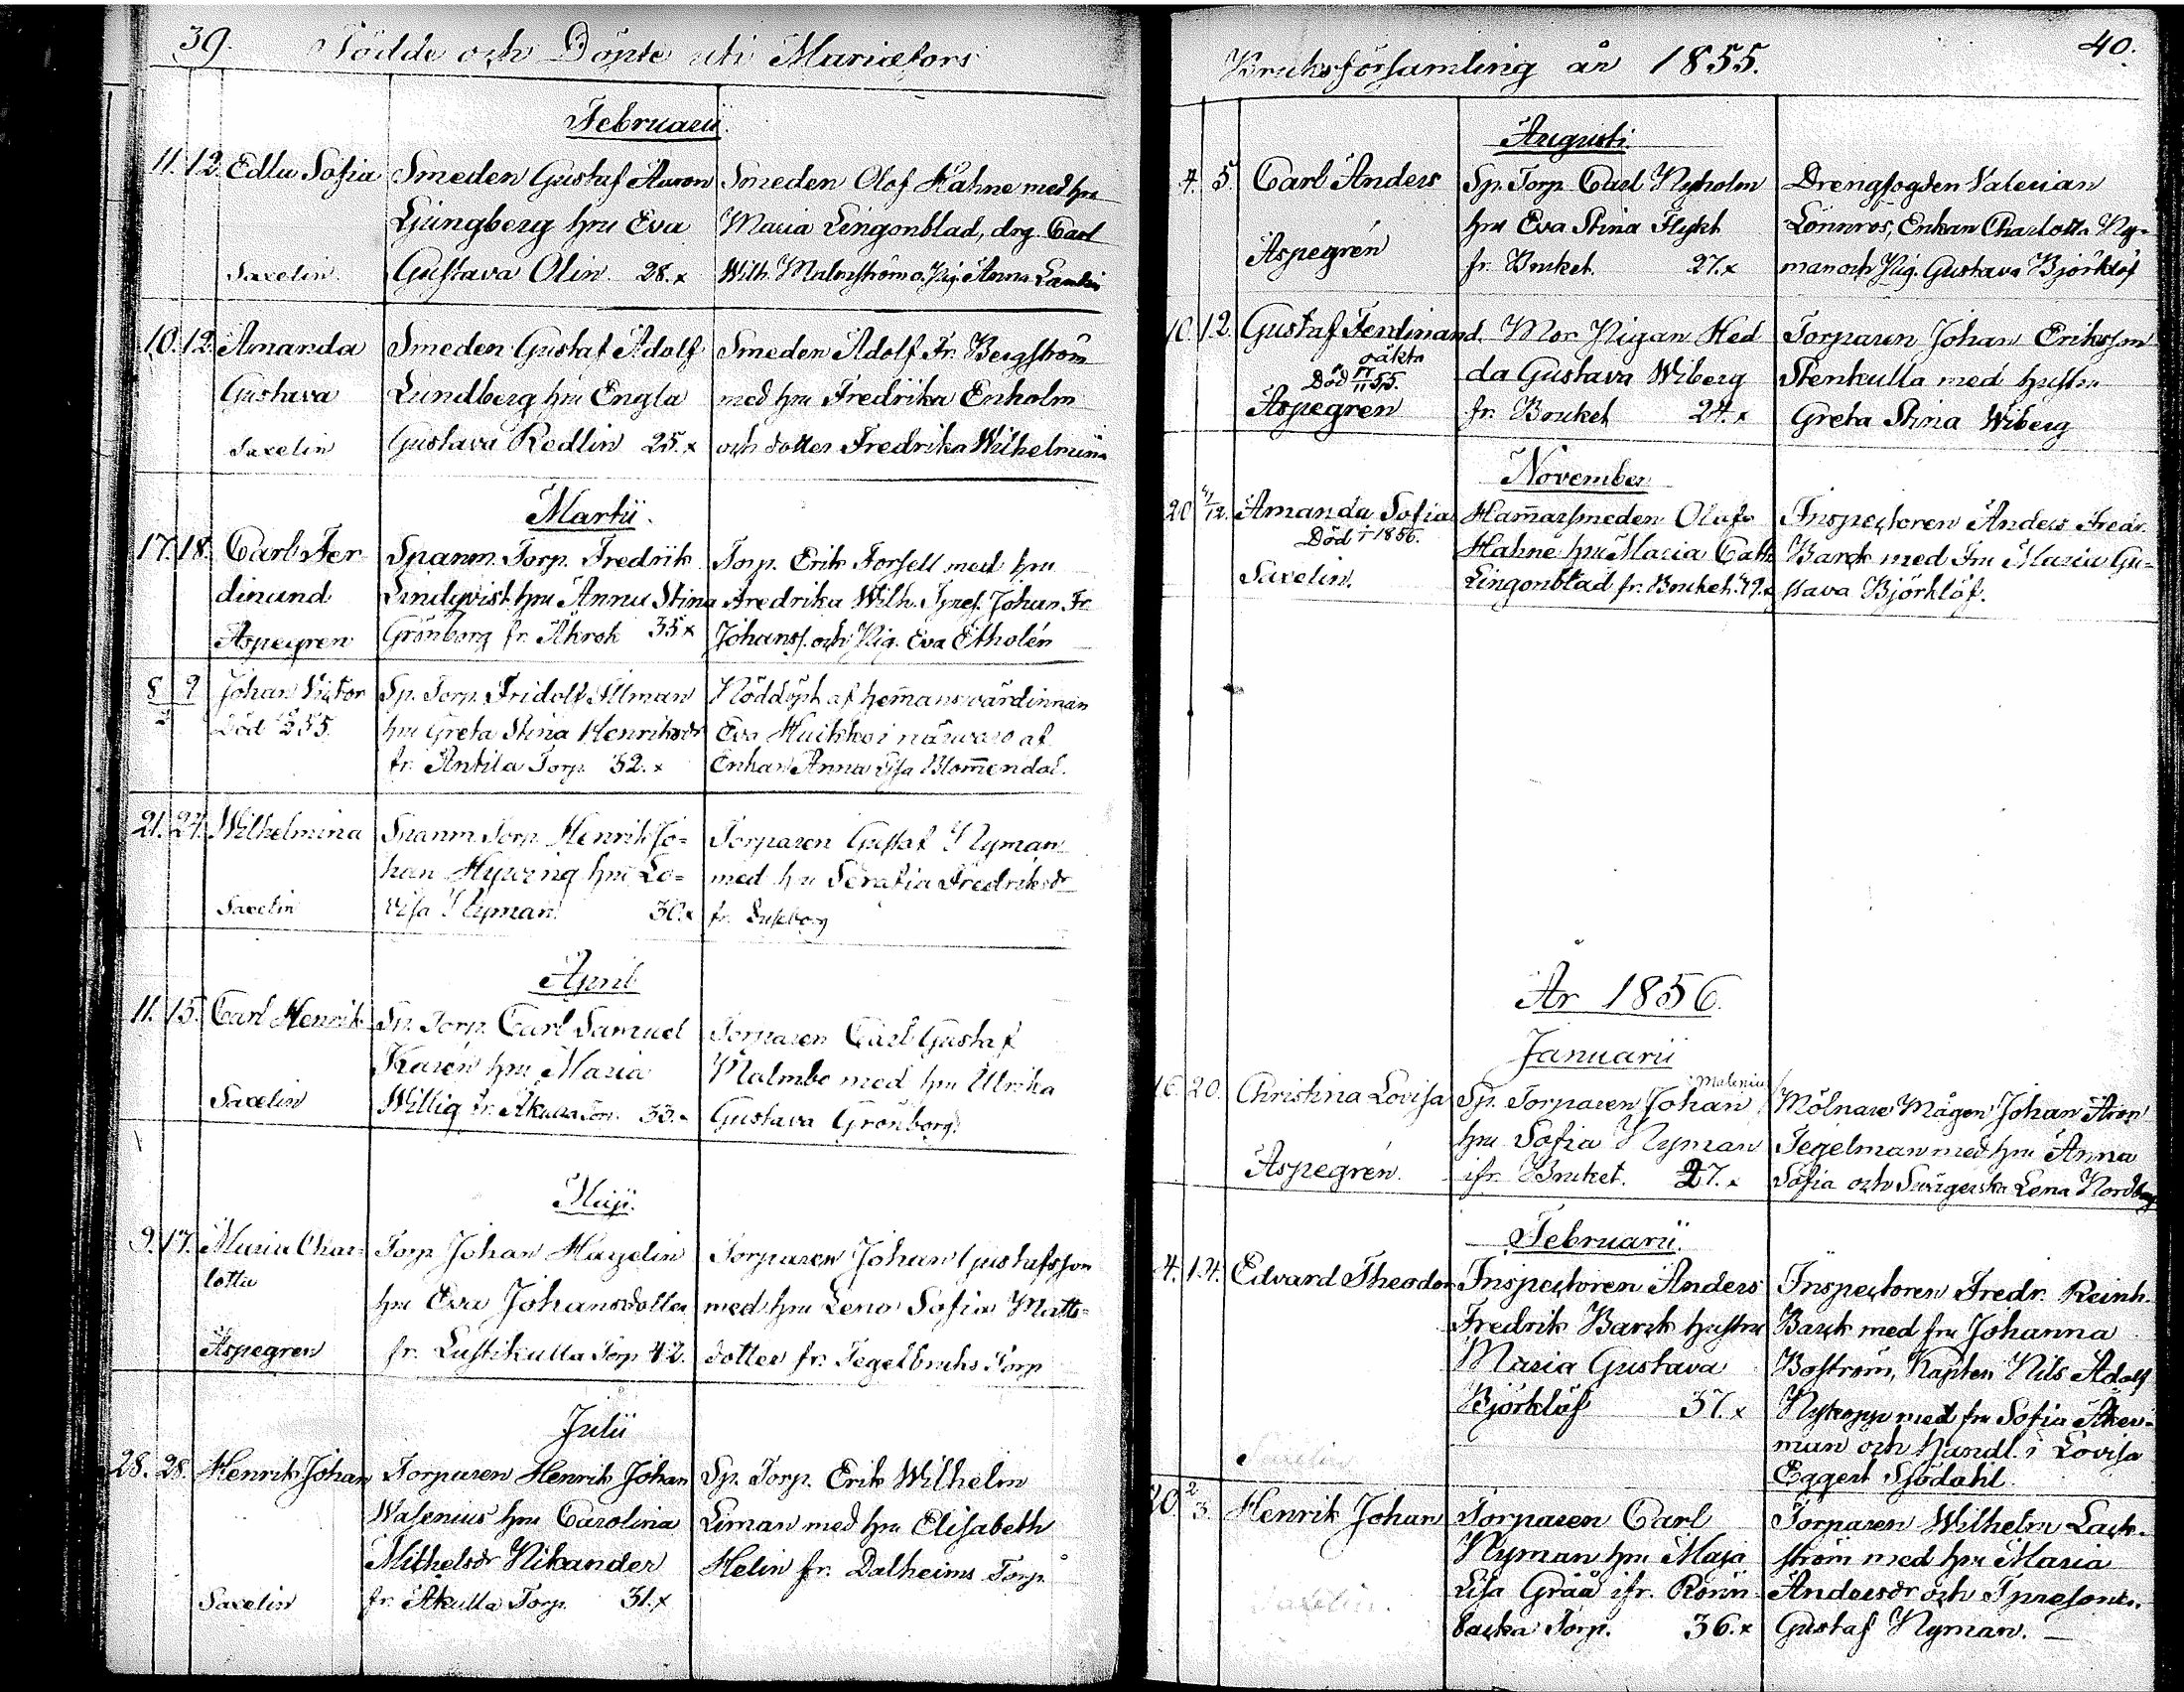 39.
Födde och Döpte uti Mariæfors
Februarii.
11. 12. Edla Sofia Smeden Gustaf Aaron Smeden Olof Hahne med hu
Ljungberg hru Eva Maria Lingonblad, drg. Carl
Saxelin Gustava Olin 28.x Wilh. Malmström o. Pig. Anna
10. 12. Amanda Smeden Gustaf Adolf Smeden Adolf Fr. Bergström
Gustava Lundberg hru Engla med hru Fredrika Enholm
Saxelin Gustava Redlin 25.x och dotter Fredrika Wilhelmina
Martii.
17. 18. Carl Fer- Spanm. Torp. Fredrik Torp. Erik Forsell med hru
dinand Lindqvist hru Anna Stina Fredrika Wilh. Johan Fr.
Aspegren Grönborg fr. Åkrok 35x Johanss. och Pig. Eva Etholén
8/3 9 Johan Victor Sp. Torp. Fridolf Allman Nöddöpt af hemans värdinnan
Död 55. hru Greta Stina Henriksdr Eva Huikko i närwaro af
fr. Antila Torp. 32.x Enkan Anna Lisa Blomendal.
21. 24. Wilhelmina Spanm. Torp. Henrik Jo= Torparen Gustaf Nyman
han Hyvöng hru Lo= med hru Serafia Fredriksdr
Saxelin visa Nyman 30.x fr.
April
11. 15. Carl Henrik Sp. Torp. Carl Samuel Torparen Carl Gustaf
Karén hru Maria Malmbo med hru Ulrika
Saxelin Willig fr. Åkulla Torp. 33.x Gustava Grönborg.
Maji.
9. 17. Maria Char= Torp. Johan Hagelin Torparen Johan Gustafsson
lotta hru Eva Johansdotter med hru Lena Sofia Matts=
Aspegren fr. Lustikulla Torp 42. dotter fr. Tegelbruks Torp
Julii
28. 28. Henrik Johan Torparen Henrik Johan Sp. Torp. Erik Wilhelm
Wasenius hru Carolina Liman med hru Elisabeth
Mithelsdr Nikander Helin fr. Dalheims Torp
Saxelin fr. Åkulla Torp. 31.x
40.
Bruksförsamling år 1855.
Augusti.
4. 5. Carl Anders Sp. Torp. Carl Nyholm Drengfogden Valerian
hru Eva Stina Flykt Lönnros, Enkan Charlotta Ny-
Aspegrén fr. Bruket. 27.x man och Pig. Gustava Björklöf
10. 12. Gustaf Ferdinand. Mor Pigan Hed Torparen Johan Eriksson
oäkta
Död 55. da Gustava Wiberg Stenkulla med hustru
Aspegren fr. Bruket 24.x Greta Stina Wiberg
November
20 Amanda Sofia Hamarsmeden Olof Inspectoren Anders Fredr.
Död 1856. Hahne hru Maria Cath. Barck med Fru Maria Gu=
Saxelin. Lingonblad fr. Bruket. stava Björklöf.
År 1856.
Januarii
Malenius
16. 20. Christina Lovisa Sp. Torparen Johan Mölnare Mågen Johan Aron
hru Sofia Nyman Tegelman med hru Anna
Aspegrén. ifr. Bruket. 27.x Sofia och Lena Nordberg
Februarii.
4. 14. Edvard Theodor Inspectoren Anders Inspectoren Fredr. Reinh.
Fredrik Barck hustru Barck med fru Johanna
Maria Gustava Boström, Kapten Nils Adolf
Björklöf 37.x Nykopp med fru Sofia Åker=
man och Handl. i Lovisa
Saxelin Eggert Sjödahl.
20. 2/3 Henrik Johan Torparen Carl Torparen Wilhelm Lack-
Nyman hru Maja ström med hru Maria
Saxelin. Lisa Gråå ifr. Rönn Andersdr och
backa Torp. 36.x Gustaf Nyman.